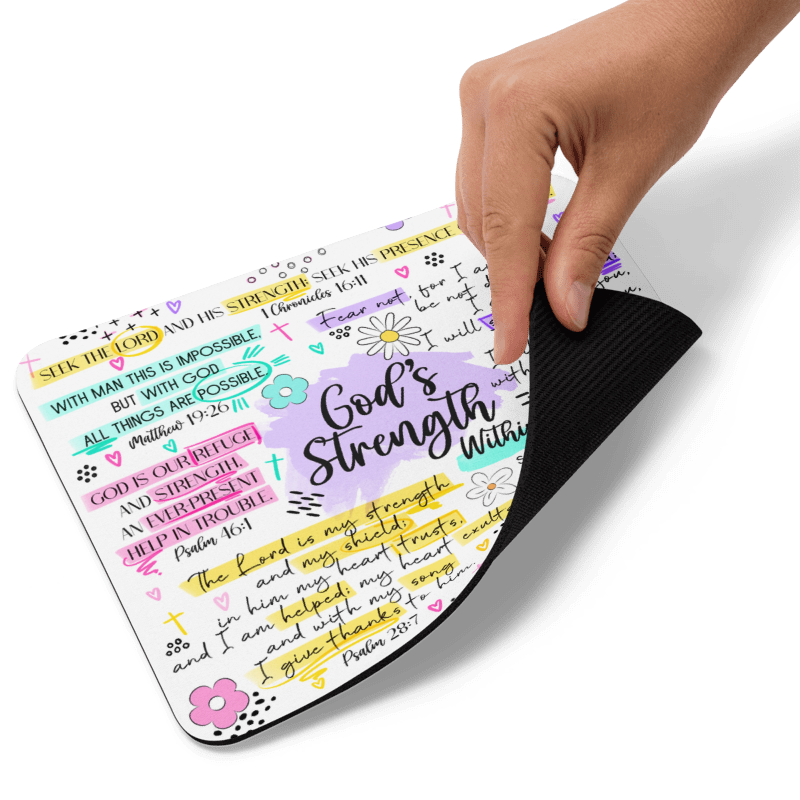 SEEK THE LORD AND HIS STRENGTH; SEEK HIS PRESENCE
1 Chronicles 16:11
WITH MAN THIS IS IMPOSSIBLE,
BUT WITH GOD
ALL THINGS ARE POSSIBLE
Matthew 19:26
GOD IS OUR REFUGE
AND STRENGTH,
AN EVER PRESENT
HELP IN TROUBLE.
Psalm 46:1
Fear not, for I a
be not d
you,
I will s
with
God's
Strength
Withi
The Lord is my strength
and my shield;
in him my heart trusts,
and I am helped; my heart exults
and with my song
I give thanks to him.
Psalm 28:7